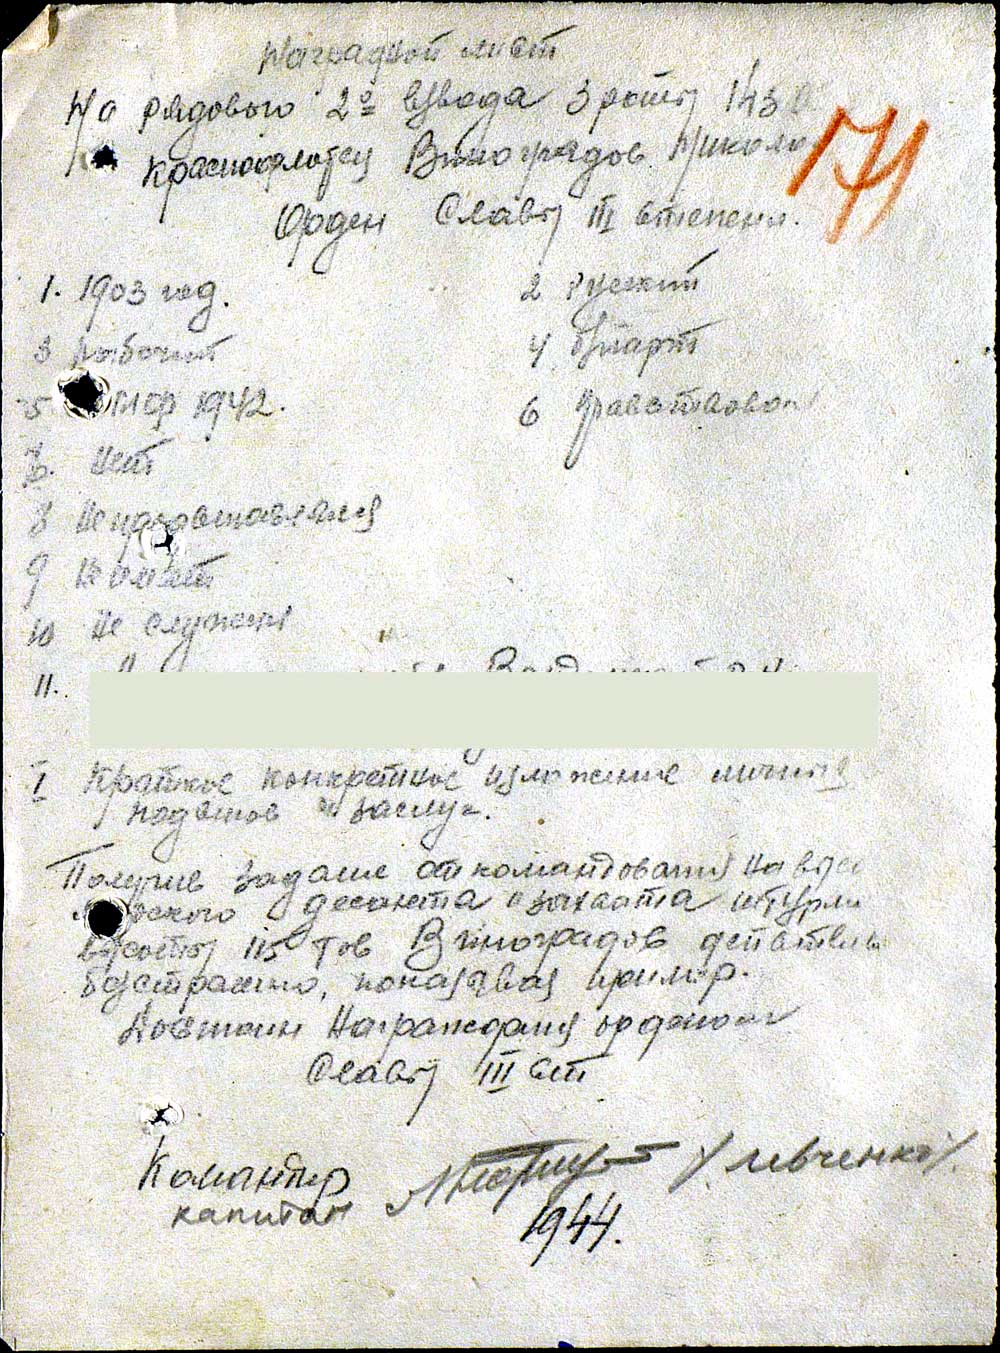 Наградной лист
На рядового 2º взвода 3 роты 143
Краснофлотец Виноградов Никола
171
Орден Славы III степени.
1. 1903 год.
2 Руский
3 Рабочий
4 б/парт
5 1942.
6
7. Нет
8 Не
9
10 Не служил
11.
I Краткое конкретное изложение личных
подвигов и заслуг.
Получив задание от командования на выса
десанта и захвата штурмо
высоты 115 тов Виноградов действовал
безстрашно, показывая пример.
Достоин Награждения орденом
Славы III ст
Командир
капитан /Левченко/.
1944.